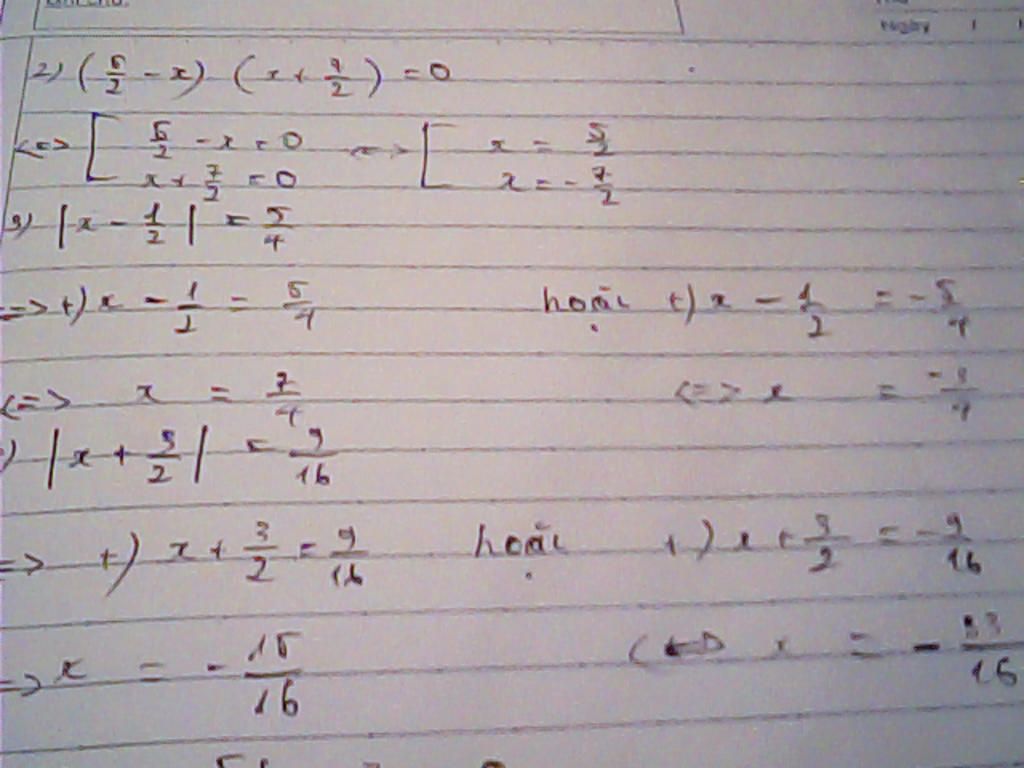 Ngày / /
2) (5/2 - x) (x + 7/2) = 0
<=> [ 5/2 - x = 0 <=> [ x = 5/2
x + 7/2 = 0 x = -7/2
3) |x - 1/2| = 5/4
=> +) x - 1/2 = 5/4 hoặc +) x - 1/2 = -5/4
<=> x = 7/4 <=> x = -3/4
) |x + 3/2| = 9/16
=> +) x + 3/2 = 9/16 hoặc +) x + 3/2 = -9/16
=> x = -15/16 <=> x = -33/16